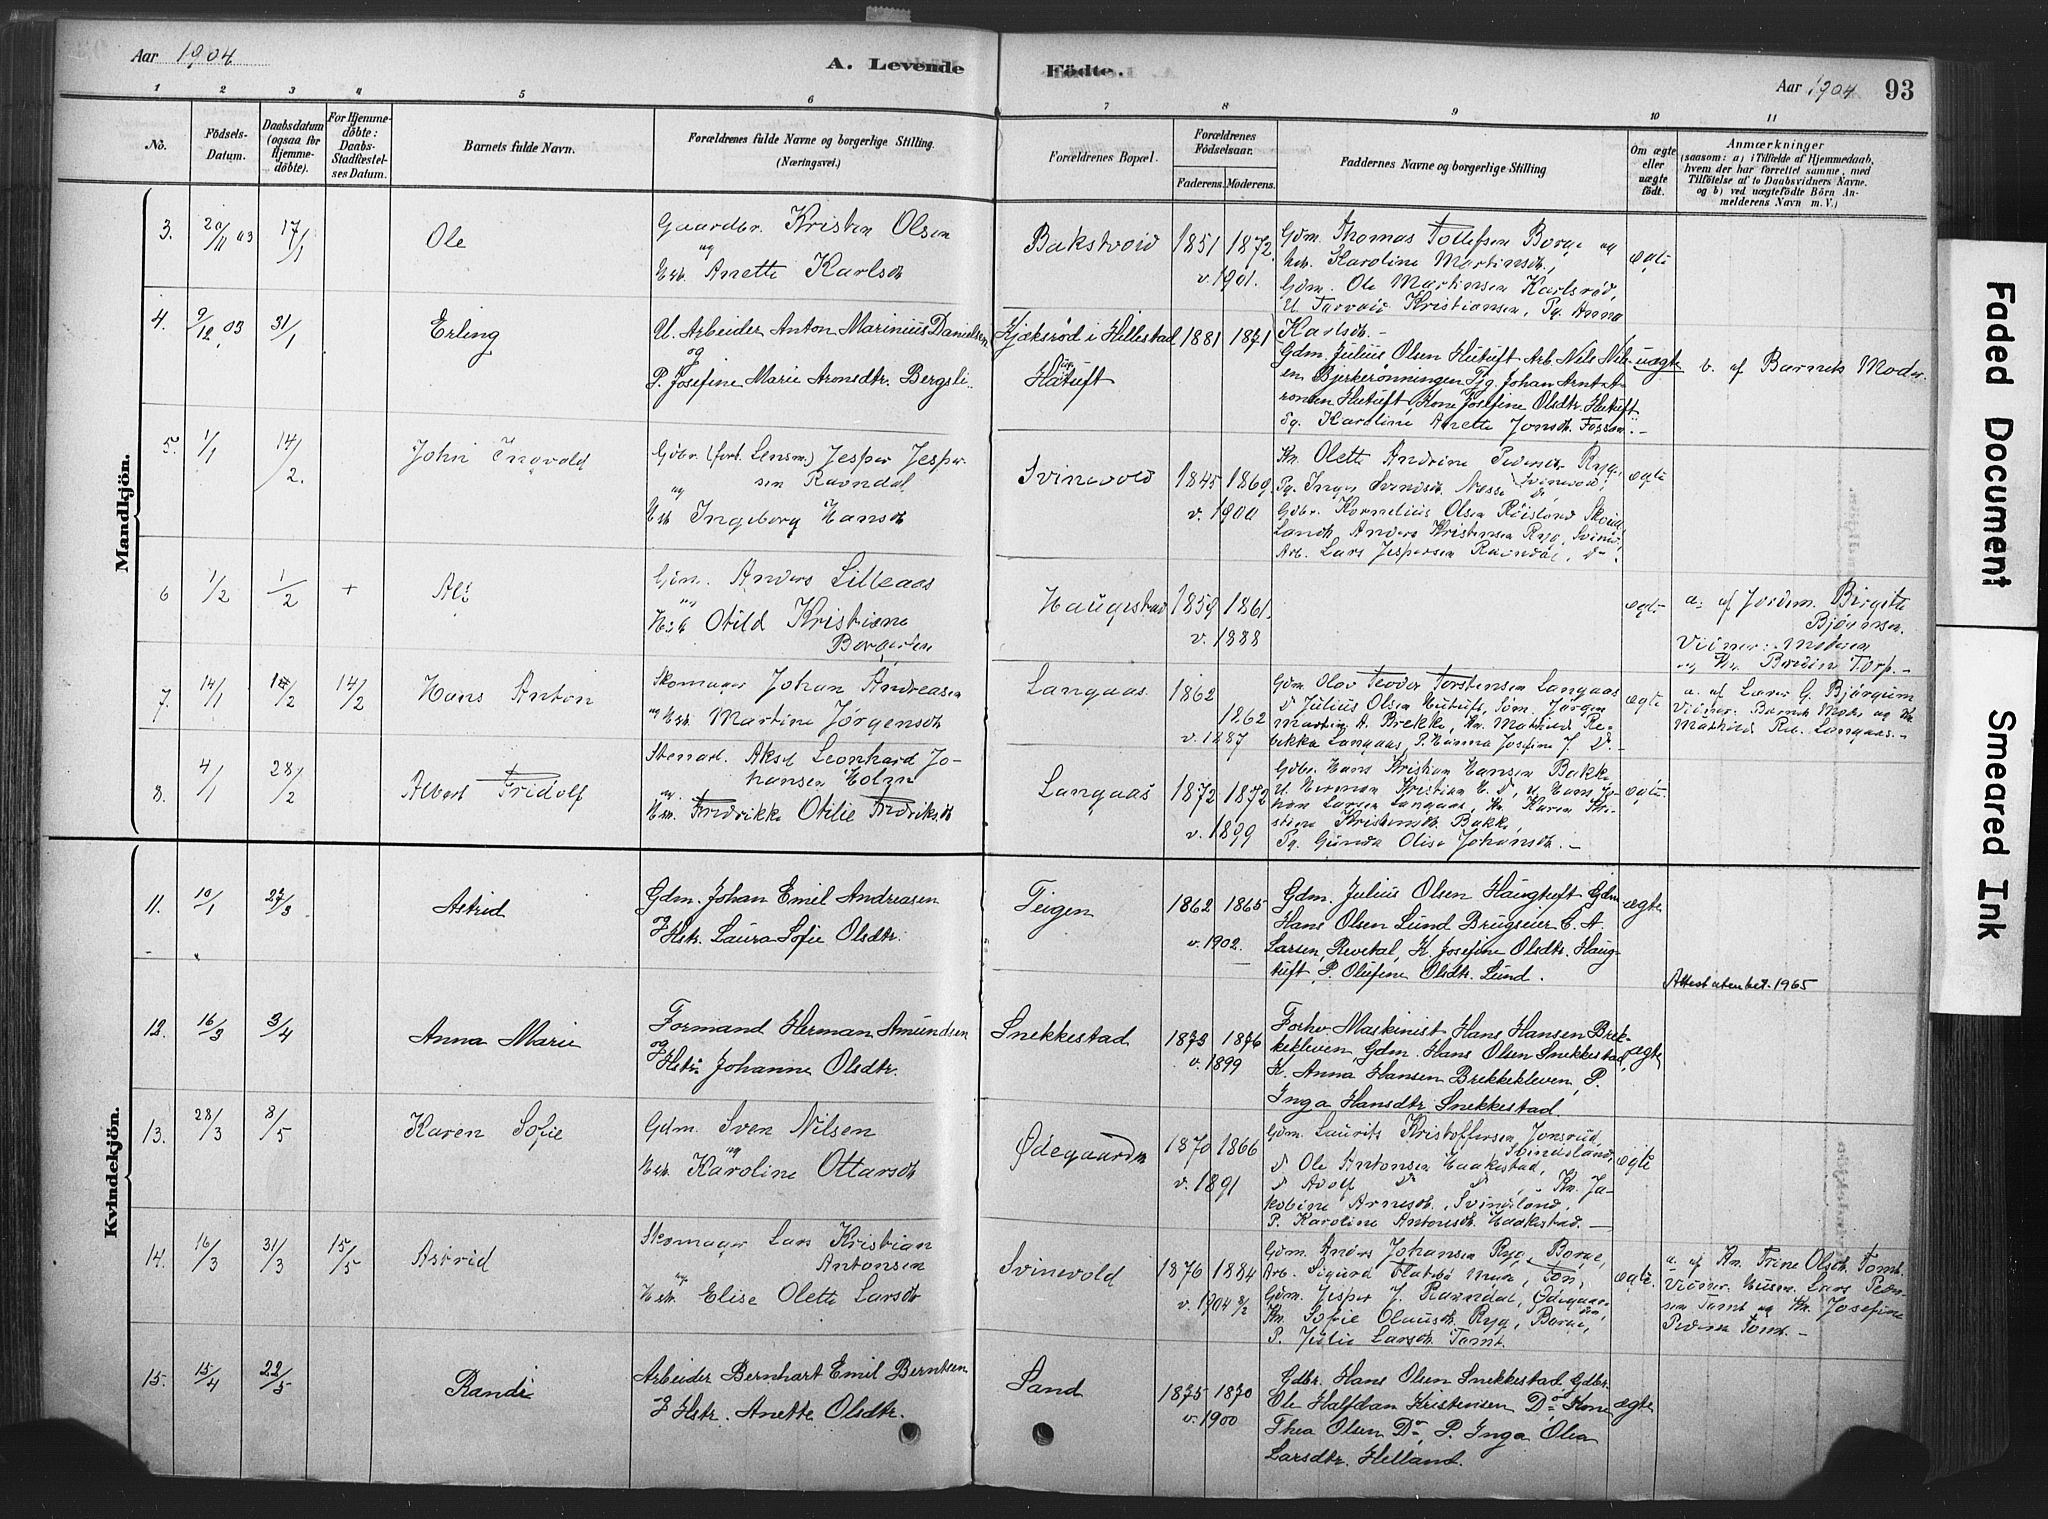 Aar 1904
A. Levende
Födte.
Aar 1904 93
1 2 3 4 5 6 7 8 9 10 11
No.
Födsels-
Datum.
Daabsdatum
(ogsaa for
Hjemme-
döbte).
For Hjemme-
döbte:
Daabs-
Stadfæstel-
ses Datum.
Barnets fulde Navn.
Forældrenes fulde Navne og borgerlige Stilling.
(Næringsvei.)
Forældrenes Bopæl.
Forældrenes
Födselsaar.
Faderens. Moderens.
Faddernes Navne og borgerlige Stilling
Om ægte
eller
uægte
födt.
Anmærkninger
(saasom: a) i Tilfælde af Hjemmedaab,
hvem der har forrettet samme, med
Tilföielse af to Daabsvidners Navne.
og b) ved uægtefödte Börn An-
melderens Navn m. V.)
Mandkjön.
3. 20/11 03 17/1 Ole
Gaardbr. Kristen Olsen
og
Hst. Anette Karlsdt
Bakstvold 1851 1872
v. 1901.
Gdm. Thomas Tollefsen Borge og
Hst. Karoline Martinsdt.,
Gdm. Ole Martinsen Karlsrød,
U. Torvald Kristiansen, Pg. Anna
Karlsdt. -
ægte
4. 9/12 03 31/1 Erling
U. Arbeider Anton Marinius Danielsen
og
P. Josefine Marie Aronsdtr. Bergsli
Kjøksrød i Hillestad
1881 1871
Gdm. Julius Olsen Hutuft Arb. Nils Nils-
en Bjerkerønningen Pg. Johan Arnt A-
ronsen Hutuft, Kone Josefine Olsdtr. Hutuft
Pg. Karoline Anette Jonsdt. Fossan. -
uægte b. af Barnets Moder.
5. 1/1 14/2. John Ingvold
Gdbr. (fort. Lensm.) Jesper Jesper-
sen Ravndal
og
Hst Ingeborg Hansdt
Svinevold 1845 1869
v. 1900
Kn. Olette Andrine Pedersdt Ryg,
Pg. Inger Svendsdt. Næsse Svinevold,
Gdbr. Kornelius Olsen Røisland
Landh. Anders Kristensen Ryg, Svinev.,
Arb. Lars Jespersen Ravndal, do.
ægte
6 1/2 1/2 + Alf
Gdm. Anders Lilleaas
og
Hst Otild Kristiane
Borgersen
Haugestad 1859 1861.
v. 1888
ægte
a. af Jordem. Birgitte
Bjørnsen.
Vidner: Moderen
og Kn. Bredin Torp. -
7. 14/1 14/2 14/2 Hans Anton
Skomager Johan Andreasen
og Hst. Martine Jørgensdt
Langaas. 1862
1862
v. 1887
Gdm Olav Teodor Torstensen Langaas
do Julius Olsen Hutuft, Tøm. Jørgen
Martin A. Brekke, Kn. Mathild Re-
bekka Langaas, P. Hanna Josefine J. do -
ægte
a. af Lærer G. Bjørgum
Vidner: Barnets Moder og Kn.
Mathild Reb. Langaas. -
8. 4/1 28/2 Albert Fridolf
Stenarb. Aksel Leonhard Jo-
hansen Holm
og
Hst. Fredrikke Otilie Fredriksdt
Langaas 1872 1872
v. 1899
Gdbr. Hans Kristian Hansen Bakke,
U. Herman Kristian H. do, U. Hans Jo-
han Larsen Langaas, Kn. Karen Kri-
stine Kristensdt. Bakke,
Pg. Gunda Olise Johansdt. -
ægte.
Kvindekjön.
11. 10/1 27/3 Astrid
Gdm. Johan Emil Andreasen
og Hstr. Laura Sofie Olsdtr.
Teigen 1862 1865
v. 1902.
Gdm. Julius Olsen Haugtuft Gdm
Hans Olsen Lund Brugseier C. A.
Larsen, Revetal, K. Josefine Olsdtr. Haug-
tuft, P. Olufine Olsdtr. Lund.
ægte
Attest utenbet. 1965
12. 16/3 3/4 Anna Marie
Formand Herman Amundsen
og
Hstr. Johanne Olsdtr.
Snekkestad 1873 1876
v. 1899
Forhv. Maskinist Hans Hansen Brek-
kekleven, Gdm. Hans Olsen Snekkestad,
K. Anna Hansen Brekkekleven, P.
Inga Hansdtr Snekkestad
ægte
13. 28/3 8/5 Karen Sofie
Gdm. Sven Nilsen
og
Hst. Karoline Ottarsdt
Ødegaarden 1870 1866
v. 1891
Gdm. Laurits Kristoffersen Jonsrud,
Svindsland,
do Ole Antonsen Haakestad,
do Adolf do do, Kn. Ja-
kobine Arnesdt., Svindsland,
P. Karoline Antonsdt. Haakestad. -
ægte
14. 16/3 31/3 15/5 Astrid
Skomager Lars Kristian
Antonsen
og
Hst. Elise Olette Larsdt
Svinevold 1876 1884
v. 1904 8/2
Gdm. Andrs Johansen Ryg, Borge,
Arb. Sigurd Flatebø Mure, Fon,
Gdm. Jesper J. Ravndal, Ødegaar-
den,
Kn. Sofie Olausdt. Ryg, Borge,
P. Julie Larsdt. Tomt.
ægte.
a. af Kn. Trine Olsdt. Tomt.
Vidner: Husm. Lars Peder-
sen Tomt og Kn. Josefine
Tomt. -
15. 15/4 22/5 Randi
Arbeider Bernhart Emil Berntsen
& Hstr. Anette Olsdtr.
Sand 1875 1870
v. 1900
Gdbr. Hans Olsen Snekkestad, Gdbr.
Ole Halfdan Kristensen Do Kone
Thea Olsen Do, P. Inga Olea
Larsdtr. Helland.
ægte
Faded Document
Smeared Ink